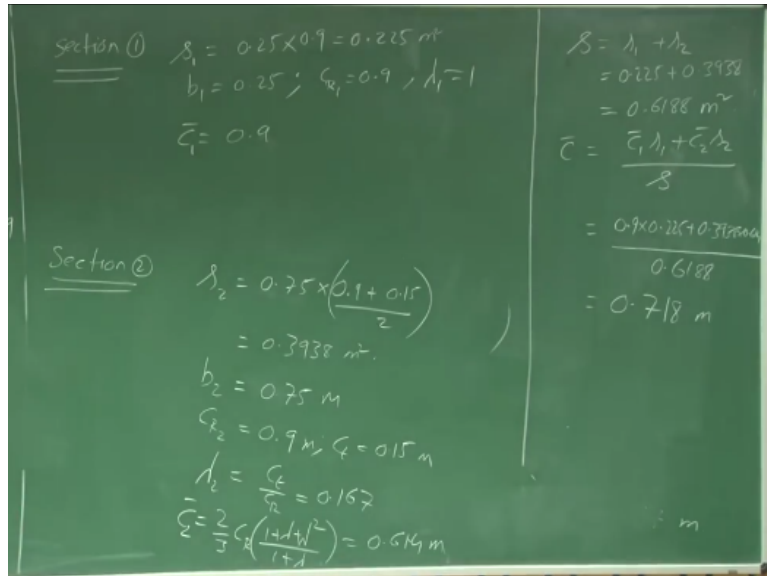 Section ①
S₁ = 0.25×0.9 = 0.225 m²
b₁ = 0.25 ; C_R₁ = 0.9 , λ₁ = 1
C̄₁ = 0.9
Section ②
S₂ = 0.75×(0.9 + 0.15 / 2)
= 0.3938 m².
b₂ = 0.75 m
C_R₂ = 0.9 m; C_t = 0.15 m
λ₂ = C_t / C_R = 0.167
C̄₂ = 2/3 C_R (1+λ+λ² / 1+λ) = 0.614 m
S = S₁ + S₂
= 0.225 + 0.3938
= 0.6188 m²
C̄ = C̄₁S₁ + C̄₂S₂ / S
= 0.9×0.225+0.3938× / 0.6188
= 0.718 m
m